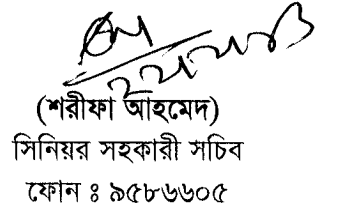 (শরীফা আহমেদ)
সিনিয়র সহকারী সচিব
ফোন ঃ ৯৫৮৬৬০৫